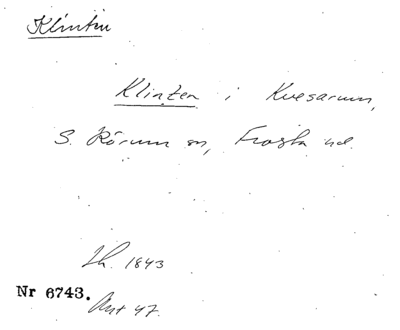 Klinten
Klinten i Kvesarum,
S. Rörum sn, Frosta hd.
Lh. 1843
Nr 6743.
Ant 47.